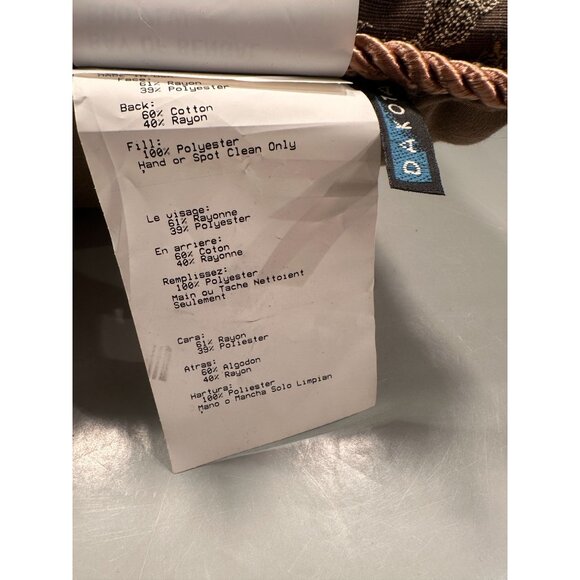 Face:
61% Rayon
39% Polyester
Back:
60% Cotton
40% Rayon
Fill:
100% Polyester
Hand or Spot Clean Only
Le visage:
61% Rayonne
39% Polyester
En arriere:
60% Coton
40% Rayonne
Remplissez:
100% Polyester
Main ou Tache Nettoient
Seulement
Cara:
61% Rayon
39% Poliester
Atras:
60% Algodon
40% Rayon
Hartura:
100% Poliester
Mano o Mancha Solo Limpian
DAKOTA